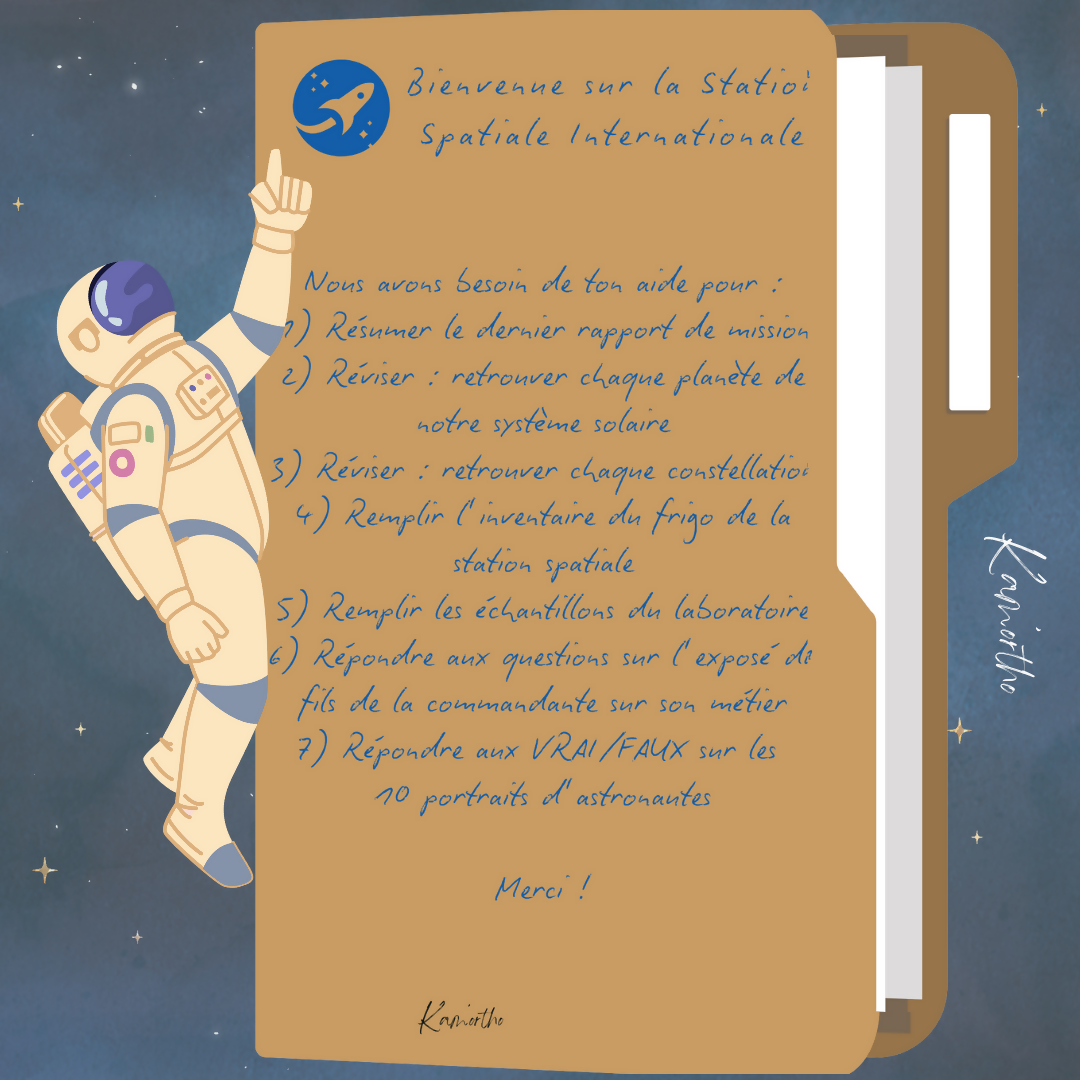 Bienvenue sur la Station
Spatiale Internationale
Nous avons besoin de ton aide pour :
1) Résumer le dernier rapport de mission
2) Réviser : retrouver chaque planète de
notre système solaire
3) Réviser : retrouver chaque constellation
4) Remplir l'inventaire du frigo de la
station spatiale
5) Remplir les échantillons du laboratoire
6) Répondre aux questions sur l'exposé de
fils de la commandante sur son métier
7) Répondre aux VRAI/FAUX sur les
10 portraits d'astronautes
Merci !
Kamortho
Kamortho